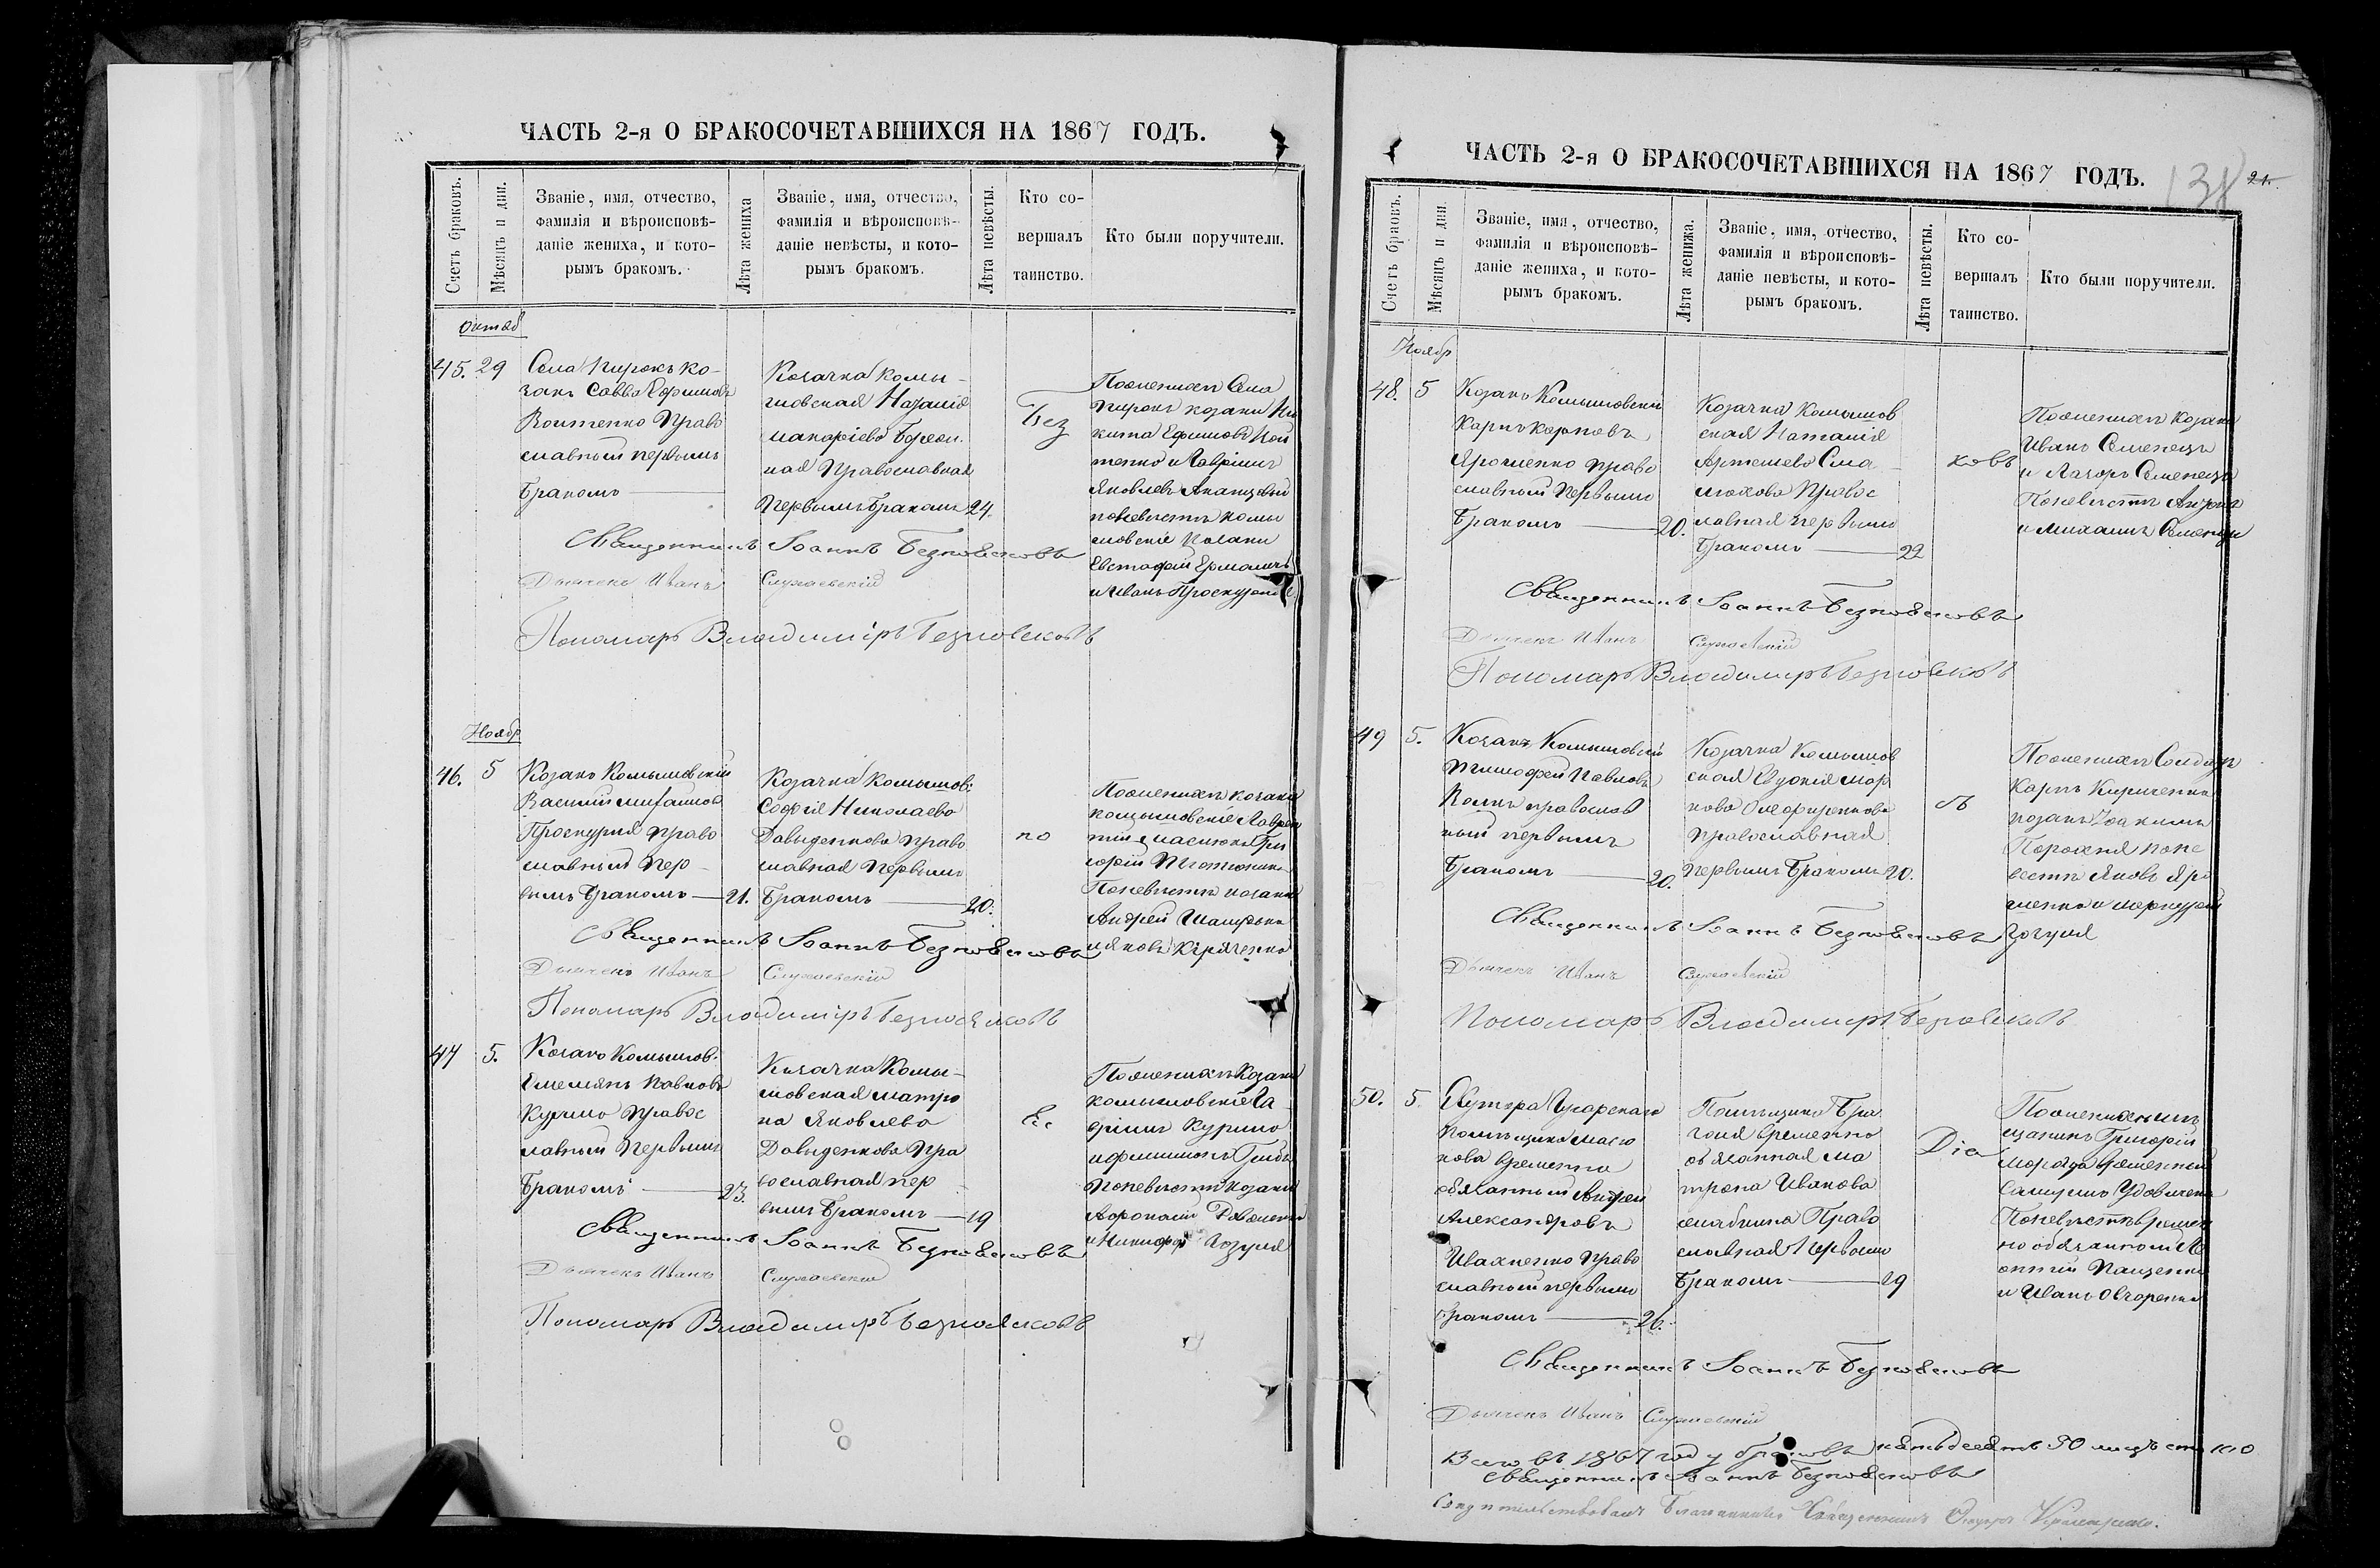 ЧАСТЬ 2-я О БРАКОСОЧЕТАВШИХСЯ НА 1867 ГОДЪ.
Счетъ браковъ.
Мѣсяцъ и дни.
Званіе, имя, отчество,
фамилія и вѣроисповѣ-
даніе жениха, и кото-
рымъ бракомъ.
Лѣта жениха
Званіе, имя, отчество,
фамилія и вѣроисповѣ-
даніе невѣсты, и кото-
рымъ бракомъ.
Лѣта невѣсты.
Кто со-
вершалъ
таинство.
Кто были поручители.
Октяб
45. 29
Села Пирокъ ко-
закъ Савва Ефимовъ
Воитенко Право
славный первымъ
бракомъ
Козачка Комы-
шовская
Макаріева
ная Православная
первымъ бракомъ 24.
Без
По женихѣ Села
Пирокъ козаки Ни
кита Ефимовъ Вои
тенко и Гавріилъ
Яковлевъ
по невѣстѣ Комы
шовскіе козаки
Евстафій
и Иванъ
Священникъ Іоаннъ Безпоясковъ
Дьячекъ Иванъ
Пономарь Владиміръ Безпоясковъ
Ноябр
46. 5
Козакъ Комышовскій
Василій Михаиловъ
Проскурня Право
славный пер-
вымъ бракомъ 21.
Козачка Комышов:
Софія Николаева
Давыденкова Право
славная первымъ
бракомъ 20.
по
По женихѣ козаки
комышовскіе Лаврен
тій Масюкъ Гри
горій
По невѣстѣ козаки
Андрей
и Яковъ Кириченко
Священникъ Іоаннъ Безпоясковъ
Дьячекъ Иванъ
Пономарь Владиміръ Безпоясковъ
47 5.
Козакъ Комышов.
Емеліянъ Павловъ
Курило Правос
лавный первымъ
бракомъ 23.
Козачка Комы-
шовская Матро
на Яковлева
Давыденкова Пра
вославная пер
вымъ бракомъ 19
Яс
По женихѣ Козаки
комышовскіе Га
вріилъ Курило
и Филимонъ
По невѣстѣ козаки
и Никифоръ Козуля
Священникъ Іоаннъ Безпоясковъ
Дьячекъ Иванъ
Пономарь Владиміръ Безпоясковъ
ЧАСТЬ 2-я О БРАКОСОЧЕТАВШИХСЯ НА 1867 ГОДЪ.
Счетъ браковъ.
Мѣсяцъ и дни.
Званіе, имя, отчество,
фамилія и вѣроисповѣ-
даніе жениха, и кото-
рымъ бракомъ.
Лѣта жениха.
Званіе, имя, отчество,
фамилія и вѣроисповѣ-
даніе невѣсты, и кото-
рымъ бракомъ.
Лѣта невѣсты.
Кто со-
вершалъ
таинство.
Кто были поручители.
Ноябр
48. 5
Козакъ Комышовскій
Карпъ Карповъ
Ярошенко право
славный первымъ
бракомъ 20.
Козачка Комышов
ская Наталія
Артемева
Правос
лавная первымъ
бракомъ 22
ковъ
По женихѣ козаки
Иванъ Семенецъ
и Лазорь Семенецъ
По невѣстѣ Андрей
и Михаилъ
Священникъ Іоаннъ Безпоясковъ
Дьячекъ Иванъ
Пономарь Владимиръ Безпоясковъ
49 5.
Козакъ Комышовскій
Тимофей Павловъ
православ
ный первымъ
бракомъ 20.
Козачка Комышов
ская Евдокія Мар
кова
православная
первымъ бракомъ 20.
съ
По женихѣ Солдатъ
Карпъ Кириченко
козакъ Іоакимъ
Порохня по не
вѣстѣ Яковъ Яро
шенко и Меркурій
Козуля
Священникъ Іоаннъ Безпоясковъ
Дьячекъ Иванъ
Пономарь Владимиръ Безпоясковъ
50. 5.
Хутора
помѣщика Масю
кова временно
обязанный Андрей
Александровъ
Ивахненко право
славный первымъ
бракомъ 26.
Помѣщика
временно
обязанная Ма
трона Иванова
Право
славная первымъ
бракомъ 19
Діа
По женихѣ мѣ
щанинъ Григорій
временный
Самуилъ Удовиченко
По невѣстѣ времен
но обязанный Ле
онтій Пащенко
и Иванъ Овчаренко
Священникъ Іоаннъ Безпоясковъ
Дьячекъ Иванъ
Всего въ 1867 году браковъ пятьдесятъ 50 лицъ сто 100
Священникъ Іоаннъ Безпоясковъ
Свидѣтельствовалъ Благочинный Священникъ